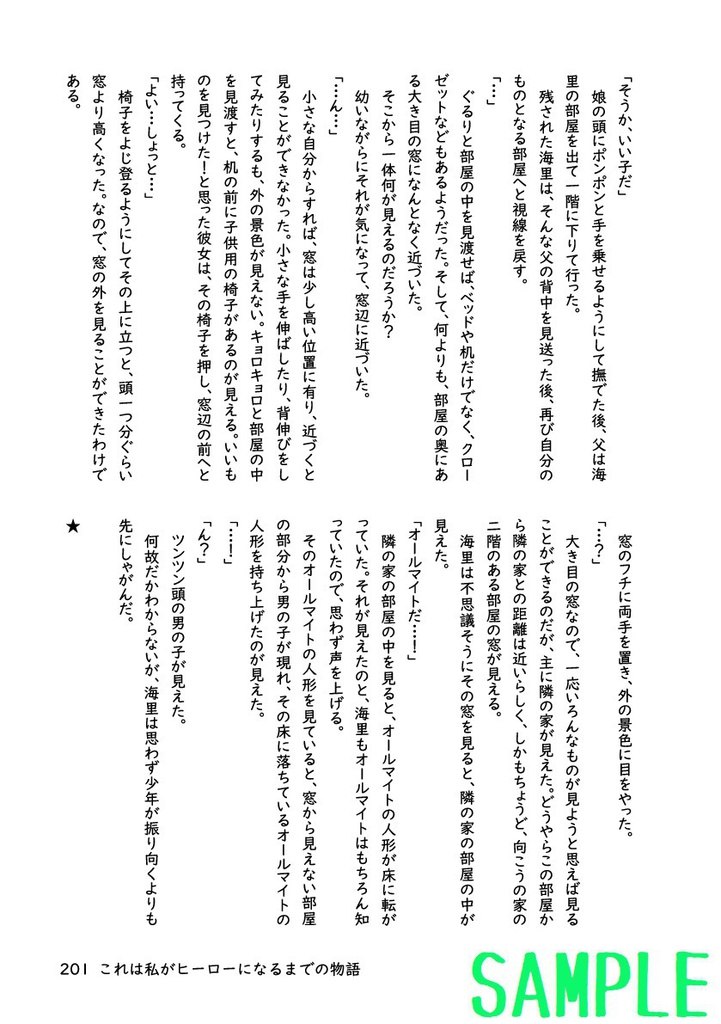 「そうか、いい子だ」
娘の頭にポンポンと手を乗せるようにして撫でた後、父は海
里の部屋を出て一階に下りて行った。
残された海里は、そんな父の背中を見送った後、再び自分の
ものとなる部屋へと視線を戻す。
「…」
ぐるりと部屋の中を見渡せば、ベッドや机だけでなく、クロー
ゼットなどもあるようだった。そして、何よりも、部屋の奥にあ
る大き目の窓になんとなく近づいた。
そこから一体何が見えるのだろうか？
幼いながらにそれが気になって、窓辺に近づいた。
「…ん…」
小さな自分からすれば、窓は少し高い位置に有り、近づくと
見ることができなかった。小さな手を伸ばしたり、背伸びをし
てみたりするも、外の景色が見えない。キョロキョロと部屋の中
を見渡すと、机の前に子供用の椅子があるのが見える。いいも
のを見つけた！と思った彼女は、その椅子を押し、窓辺の前へと
持ってくる。
「よい…しょっと…」
椅子をよじ登るようにしてその上に立つと、頭一つ分ぐらい
窓より高くなった。なので、窓の外を見ることができたわけで
ある。
窓のフチに両手を置き、外の景色に目をやった。
「…？」
大き目の窓なので、一応いろんなものが見ようと思えば見る
ことができるのだが、主に隣の家が見えた。どうやらこの部屋か
ら隣の家との距離は近いらしく、しかもちょうど、向こうの家の
二階のある部屋の窓が見える。
海里は不思議そうにその窓を見ると、隣の家の部屋の中が
見えた。
「オールマイトだ…！」
隣の家の部屋の中を見ると、オールマイトの人形が床に転が
っていた。それが見えたのと、海里もオールマイトはもちろん知
っていたので、思わず声を上げる。
そのオールマイトの人形を見ていると、窓から見えない部屋
の部分から男の子が現れ、その床に落ちているオールマイトの
人形を持ち上げたのが見えた。
「…！」
「ん？」
ツンツン頭の男の子が見えた。
何故だかわからないが、海里は思わず少年が振り向くよりも
先にしゃがんだ。
★
201 これは私がヒーローになるまでの物語
SAMPLE